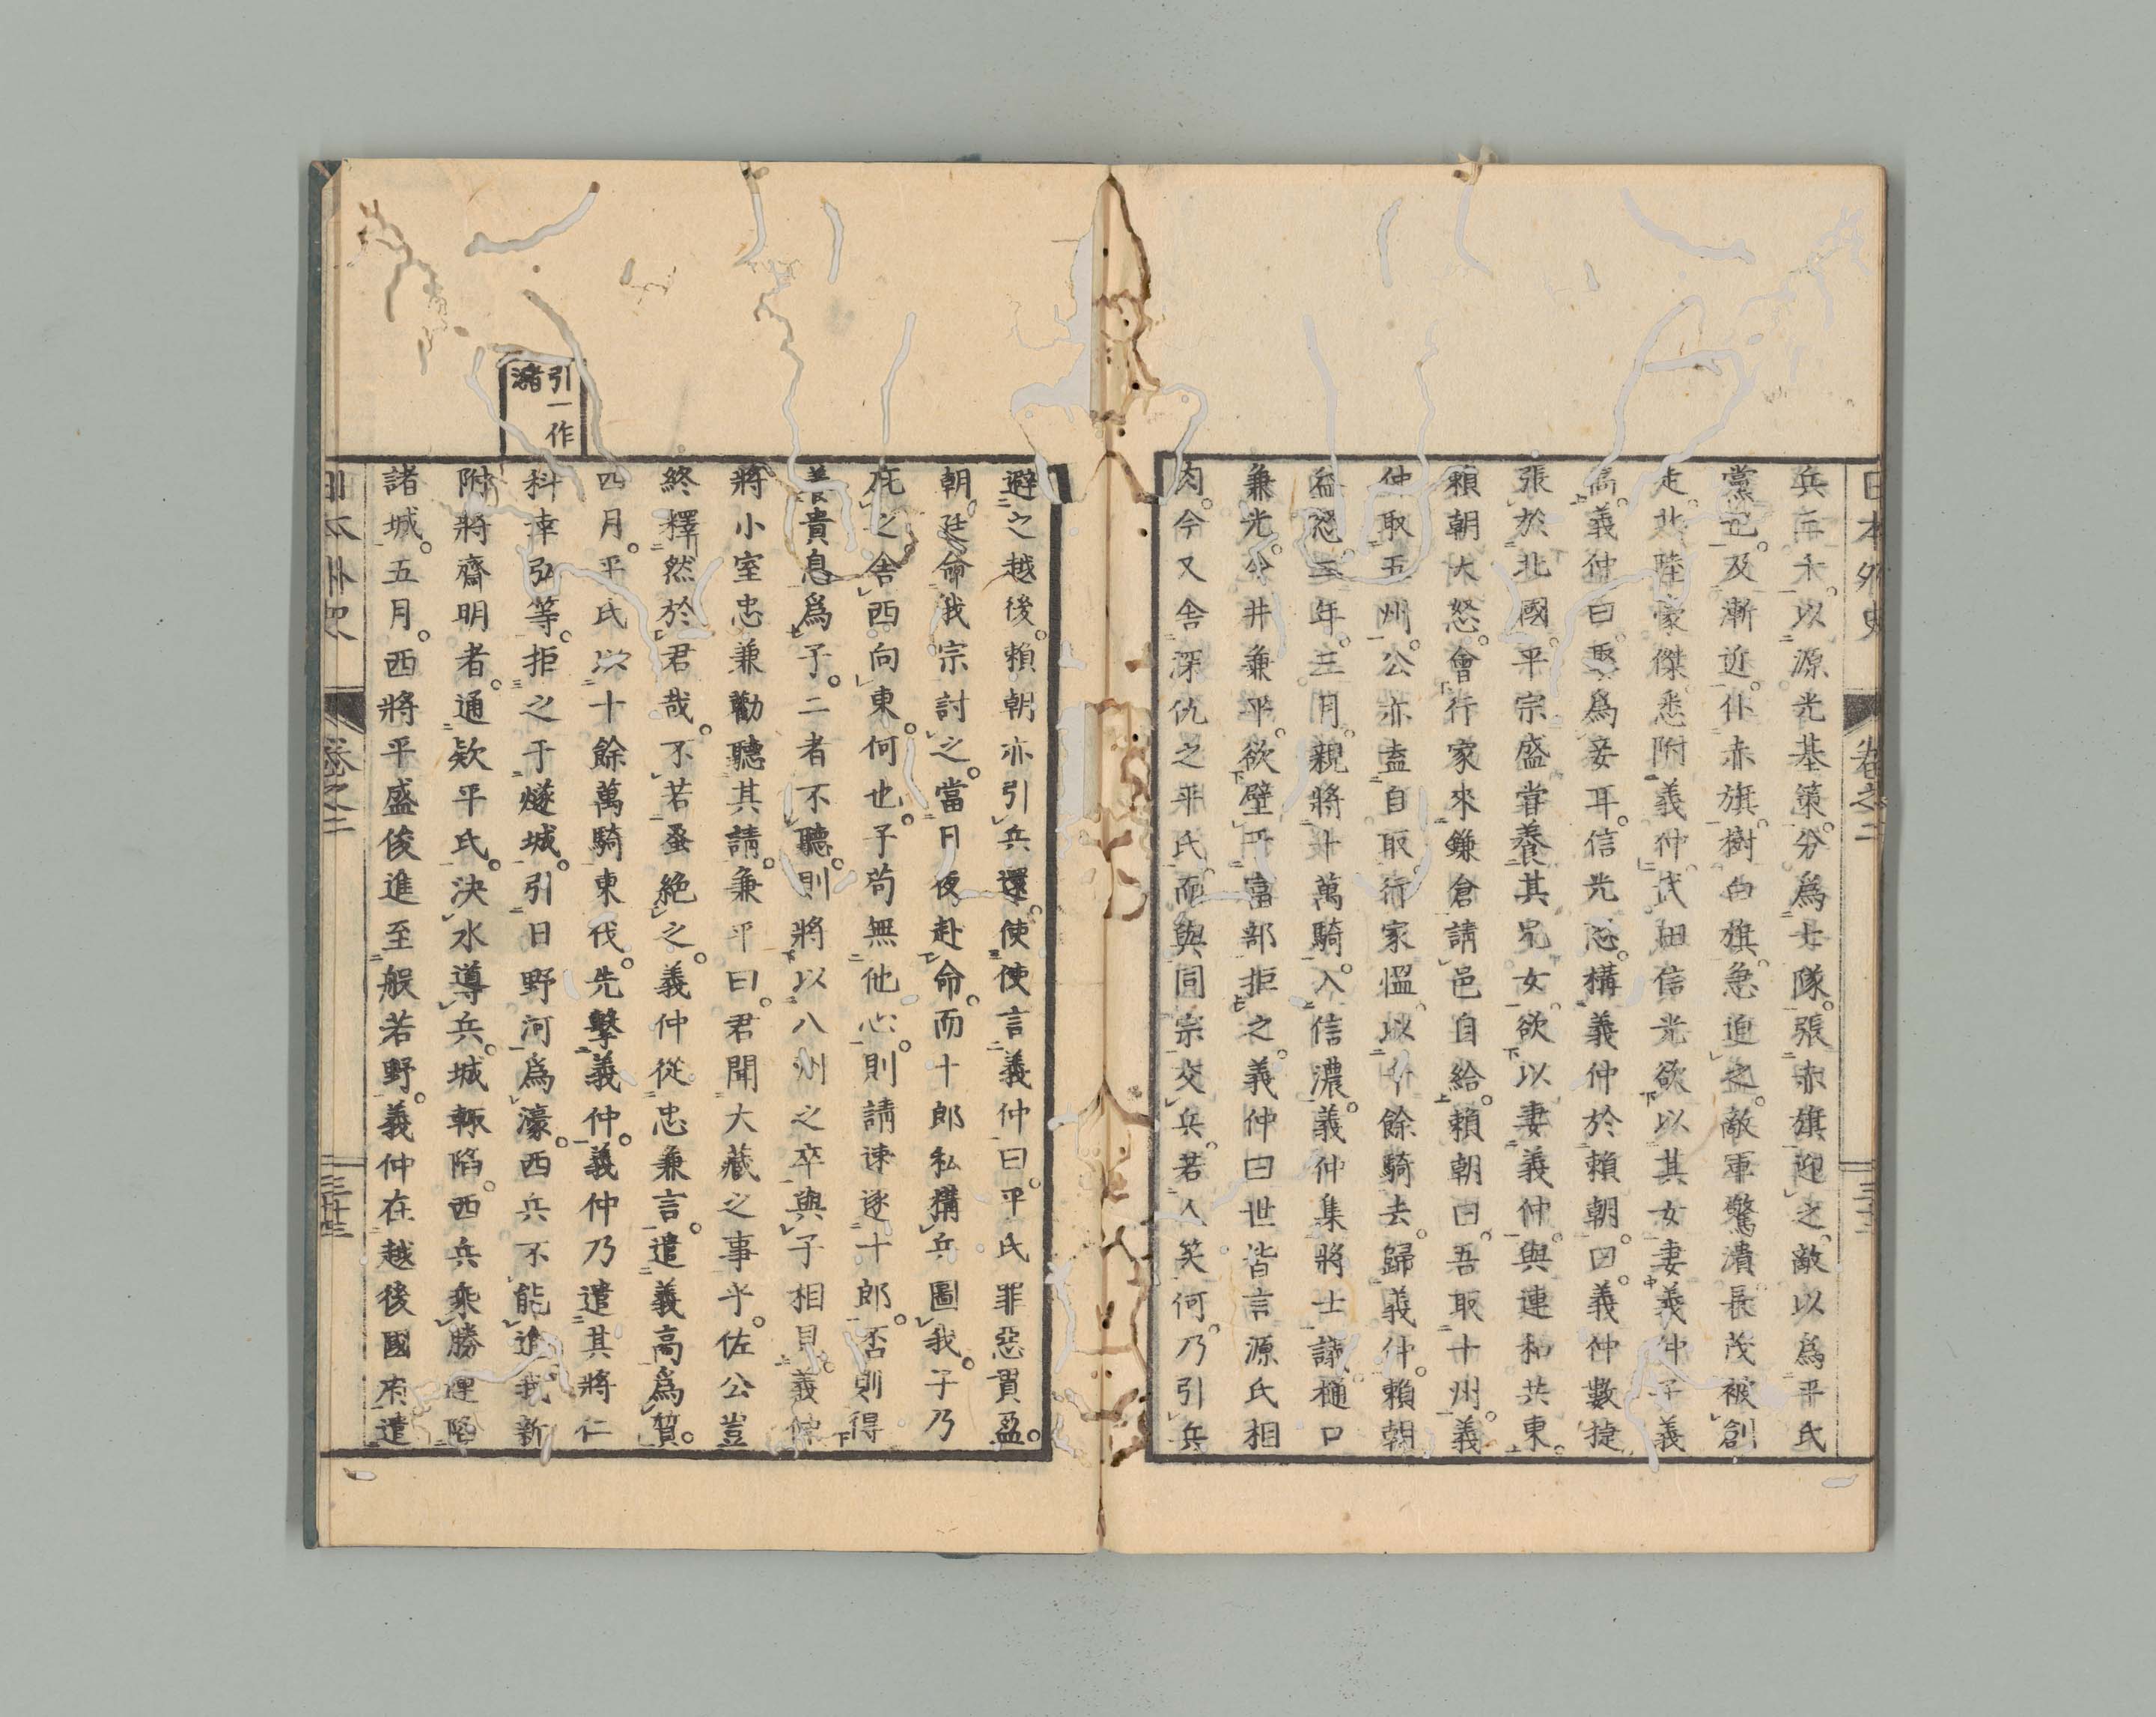 日本外史 卷之二 三十三
兵三千。以源光基策。分爲七隊。張赤旗迎之。敵以爲平氏
黨也。及漸近。仆赤旗。樹白旗。急迫之。敵軍驚潰。長茂被創
走。北陸豪傑悉附義仲。武田信光欲以其女妻義仲子義
高。義仲曰。娶爲妾耳。信光怒。構義仲於賴朝。曰。義仲數捷
張於北國。平宗盛嘗養其兄女。欲以妻義仲。與連和共東。
賴朝大怒。會行家來鎌倉請邑自給。賴朝曰。吾取十州。義
仲取五州。公亦盍自取。行家慍。以千餘騎去。歸義仲。賴朝
益怒。三年。三月。親將十萬騎。入信濃。義仲集將士議。樋口
兼光。今井兼平。欲壁于富部拒之。義仲曰世皆言源氏相
肉。今又舍深仇之平氏。而與同宗交兵。若人笑何。乃引兵
避之越後。賴朝亦引兵還。使使言義仲曰。平氏罪惡貫盈。
朝廷命我宗討之。當日夜赴命。而十郎私構兵圖我。子乃
庇之舍西向東。何也。子苟無他心。則請速逐十郎。否則得
養貴息爲子。二者不聽。則將以八州之卒與子相見。義仲
將小室忠兼勸聽其請。兼平曰。君聞大藏之事乎。佐公豈
終釋然於君哉。不若蚤絕之。義仲從忠兼言。遣義高爲質。
四月。平氏以十餘萬騎東伐。先擊義仲。義仲乃遣其將仁
科幸弘等。拒之于燧城。引日野河爲濠。西兵不能進。我新
附將齋明者。通欵平氏。決水導兵。城輙陷。西兵乘勝連陷
諸城。五月。西將平盛俊進至般若野。義仲在越後國府遣
引一作
瀦
日本外史 卷之二 三十三